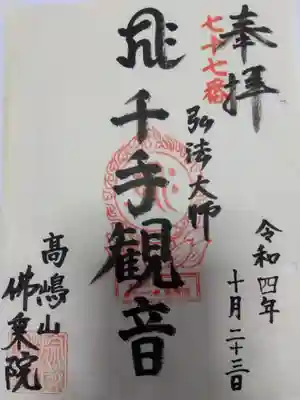 奉拝
七十七番
弘法大師
令和四年
十月二十三日
千手観音
高嶋山
佛乗院